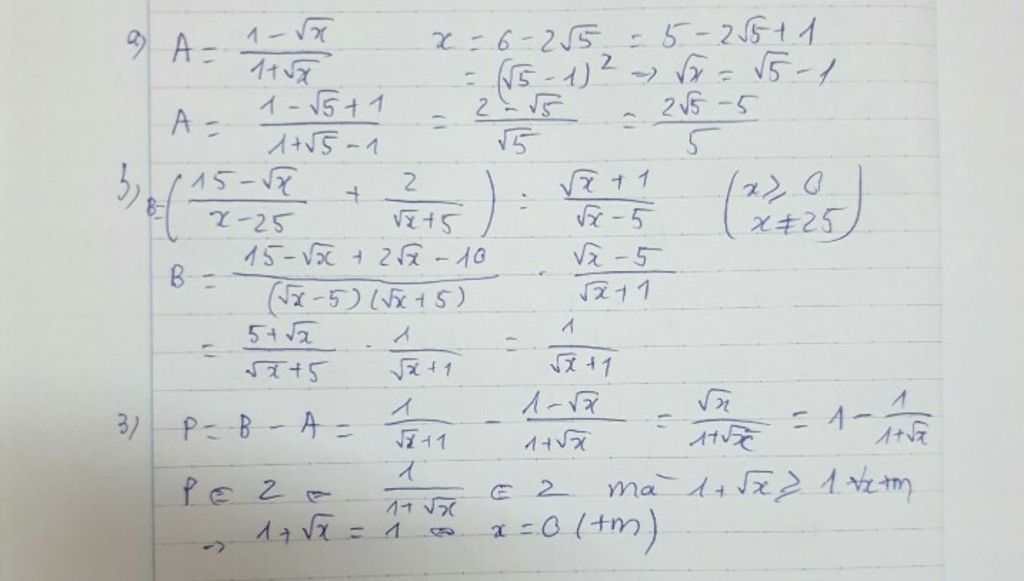 a) A = \frac{1-\sqrt{x}}{1+\sqrt{x}} x = 6 - 2\sqrt{5} = 5 - 2\sqrt{5} + 1
= (\sqrt{5} - 1)^2 ⇒ \sqrt{x} = \sqrt{5} - 1
A = \frac{1-\sqrt{5}+1}{1+\sqrt{5}-1} = \frac{2-\sqrt{5}}{\sqrt{5}} = \frac{2\sqrt{5}-5}{5}
b) B = (\frac{15-\sqrt{x}}{x-25} + \frac{2}{\sqrt{x}+5}) : \frac{\sqrt{x}+1}{\sqrt{x}-5} (x ≥ 0 x ≠ 25)
B = \frac{15-\sqrt{x}+2\sqrt{x}-10}{(\sqrt{x}-5)(\sqrt{x}+5)} \cdot \frac{\sqrt{x}-5}{\sqrt{x}+1}
= \frac{5+\sqrt{x}}{\sqrt{x}+5} \cdot \frac{1}{\sqrt{x}+1} = \frac{1}{\sqrt{x}+1}
3) P = B - A = \frac{1}{\sqrt{x}+1} - \frac{1-\sqrt{x}}{1+\sqrt{x}} = \frac{\sqrt{x}}{1+\sqrt{x}} = 1 - \frac{1}{1+\sqrt{x}}
P ∈ Z ⇔ \frac{1}{1+\sqrt{x}} ∈ Z mà 1 + \sqrt{x} ≥ 1 ∀x tm
⇒ 1 + \sqrt{x} = 1 ⇔ x = 0 (tm)